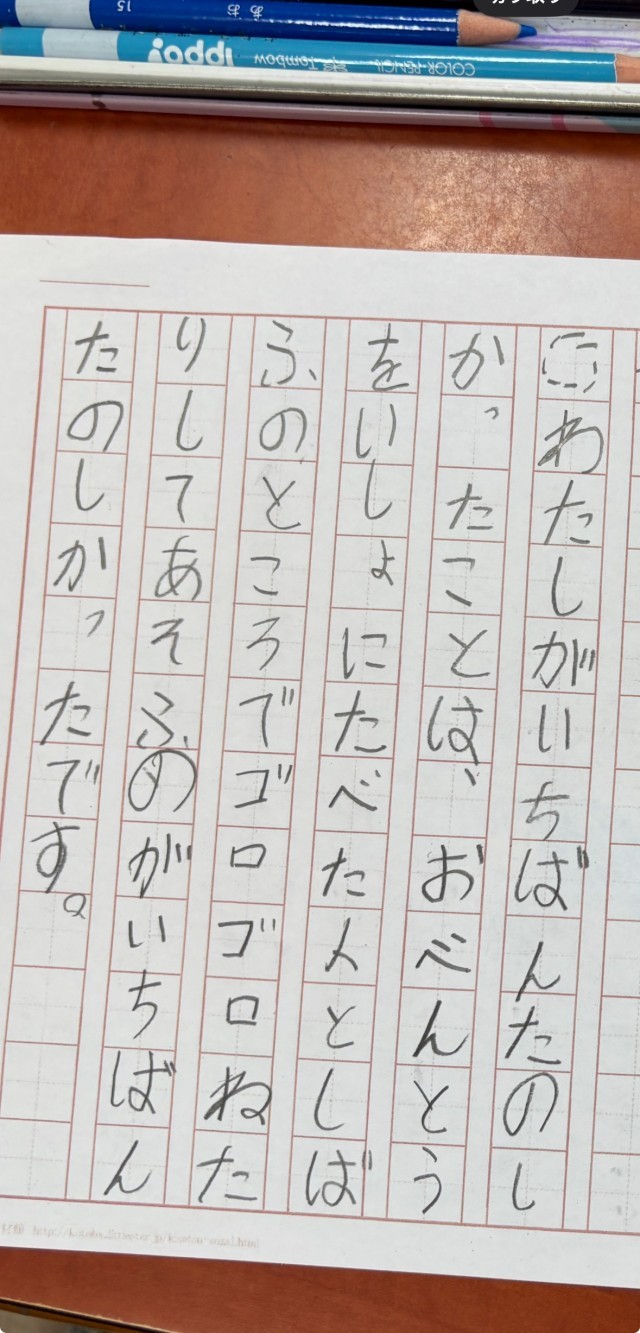 ガラ取り
15
おお
ippo! Tombow COLOR PENCIL
わたしがいちばんたのし
かったことは、おべんとう
をいしょにたべた人としば
ふのところでゴロゴロねた
りしてあそぶのがいちばん
たのしかったです。